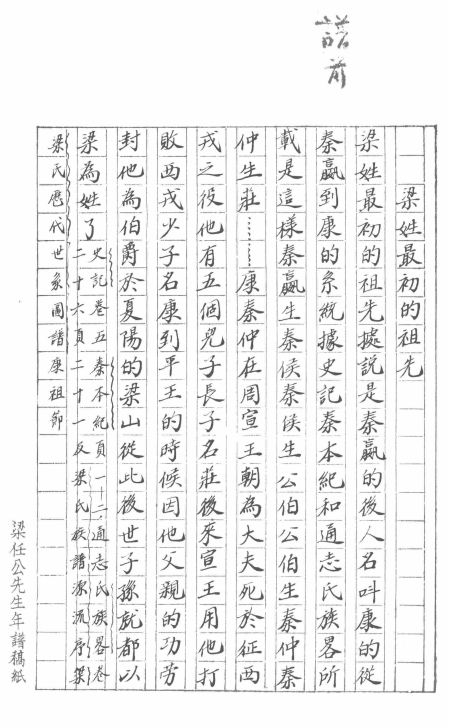 譜前
梁姓最初的祖先
梁姓最初的祖先據說是秦嬴的後人名叫康的從
秦嬴到康的系統據史記秦本紀和通志氏族畧所
載是這樣秦嬴生秦侯秦侯生公伯公伯生秦仲秦
仲生莊………康秦仲在周宣王朝為大夫死於征西
戎之役他有五個兒子長子名莊後來宣王用他打
敗西戎少子名康到平王的時候因他父親的功劳
封他為伯爵於夏陽的梁山從此後世子孫就都以
梁為姓了
史記卷五秦本紀頁一—二、通志氏族畧卷
二十六頁二十一反梁氏族譜源流序梁
梁氏歷代世系圖譜康祖節
梁任公先生年譜稿紙